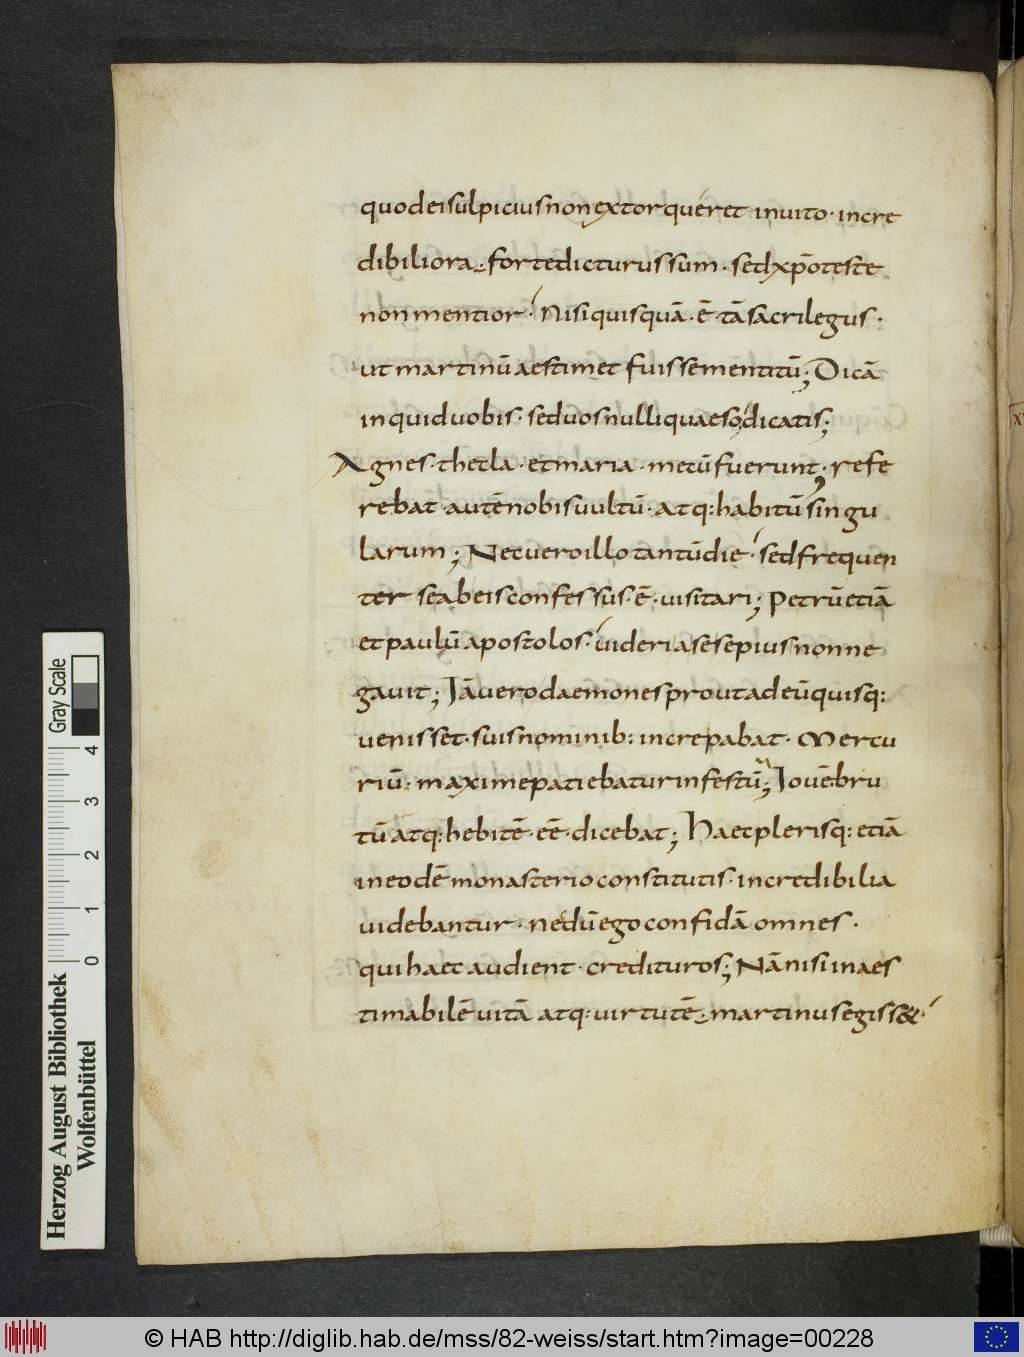 quodei sulpicius non extorqueret inuito· incre
dibiliora· forte dicturus sum· sed xp̄o teste
non mentior· Nisi quisquā· ē· tā sacrilegus·
ut martinū aestimet fuisse mentitū; Dicā
inquid uobis· sed uos nulli quaeso dicatis;
Agnes· thecla· et maria· mecū fuerunt; refe
rebat autē nobis uultū· atq: habitū singu
larum; Nec uero illo tantū die· sed frequen
ter se ab eis confessus· ē· uisitari; Petrū etiā
et paulū apostolos· uideri a se sepius non ne
gauit; Iā uero daemones prout ad eū quisq:
uenisset· suis nominib: increpabat· Mercu
riū· maxime patiebatur infestū; Iouē bru
tū atq: hebitē· eē· dicebat; Haec plerisq: etiā
in eodē monasterio constitutis· incredibilia
uidebantur· nedū ego confidā omnes·
qui haec audient· credituros; Nā nisi inaes
timabilē uitā atq: uirtutē· martinus egiss&·
Herzog August Bibliothek
Wolfenbüttel
Gray Scale
0 1 2 3 4
© HAB http://diglib.hab.de/mss/82-weiss/start.htm?image=00228